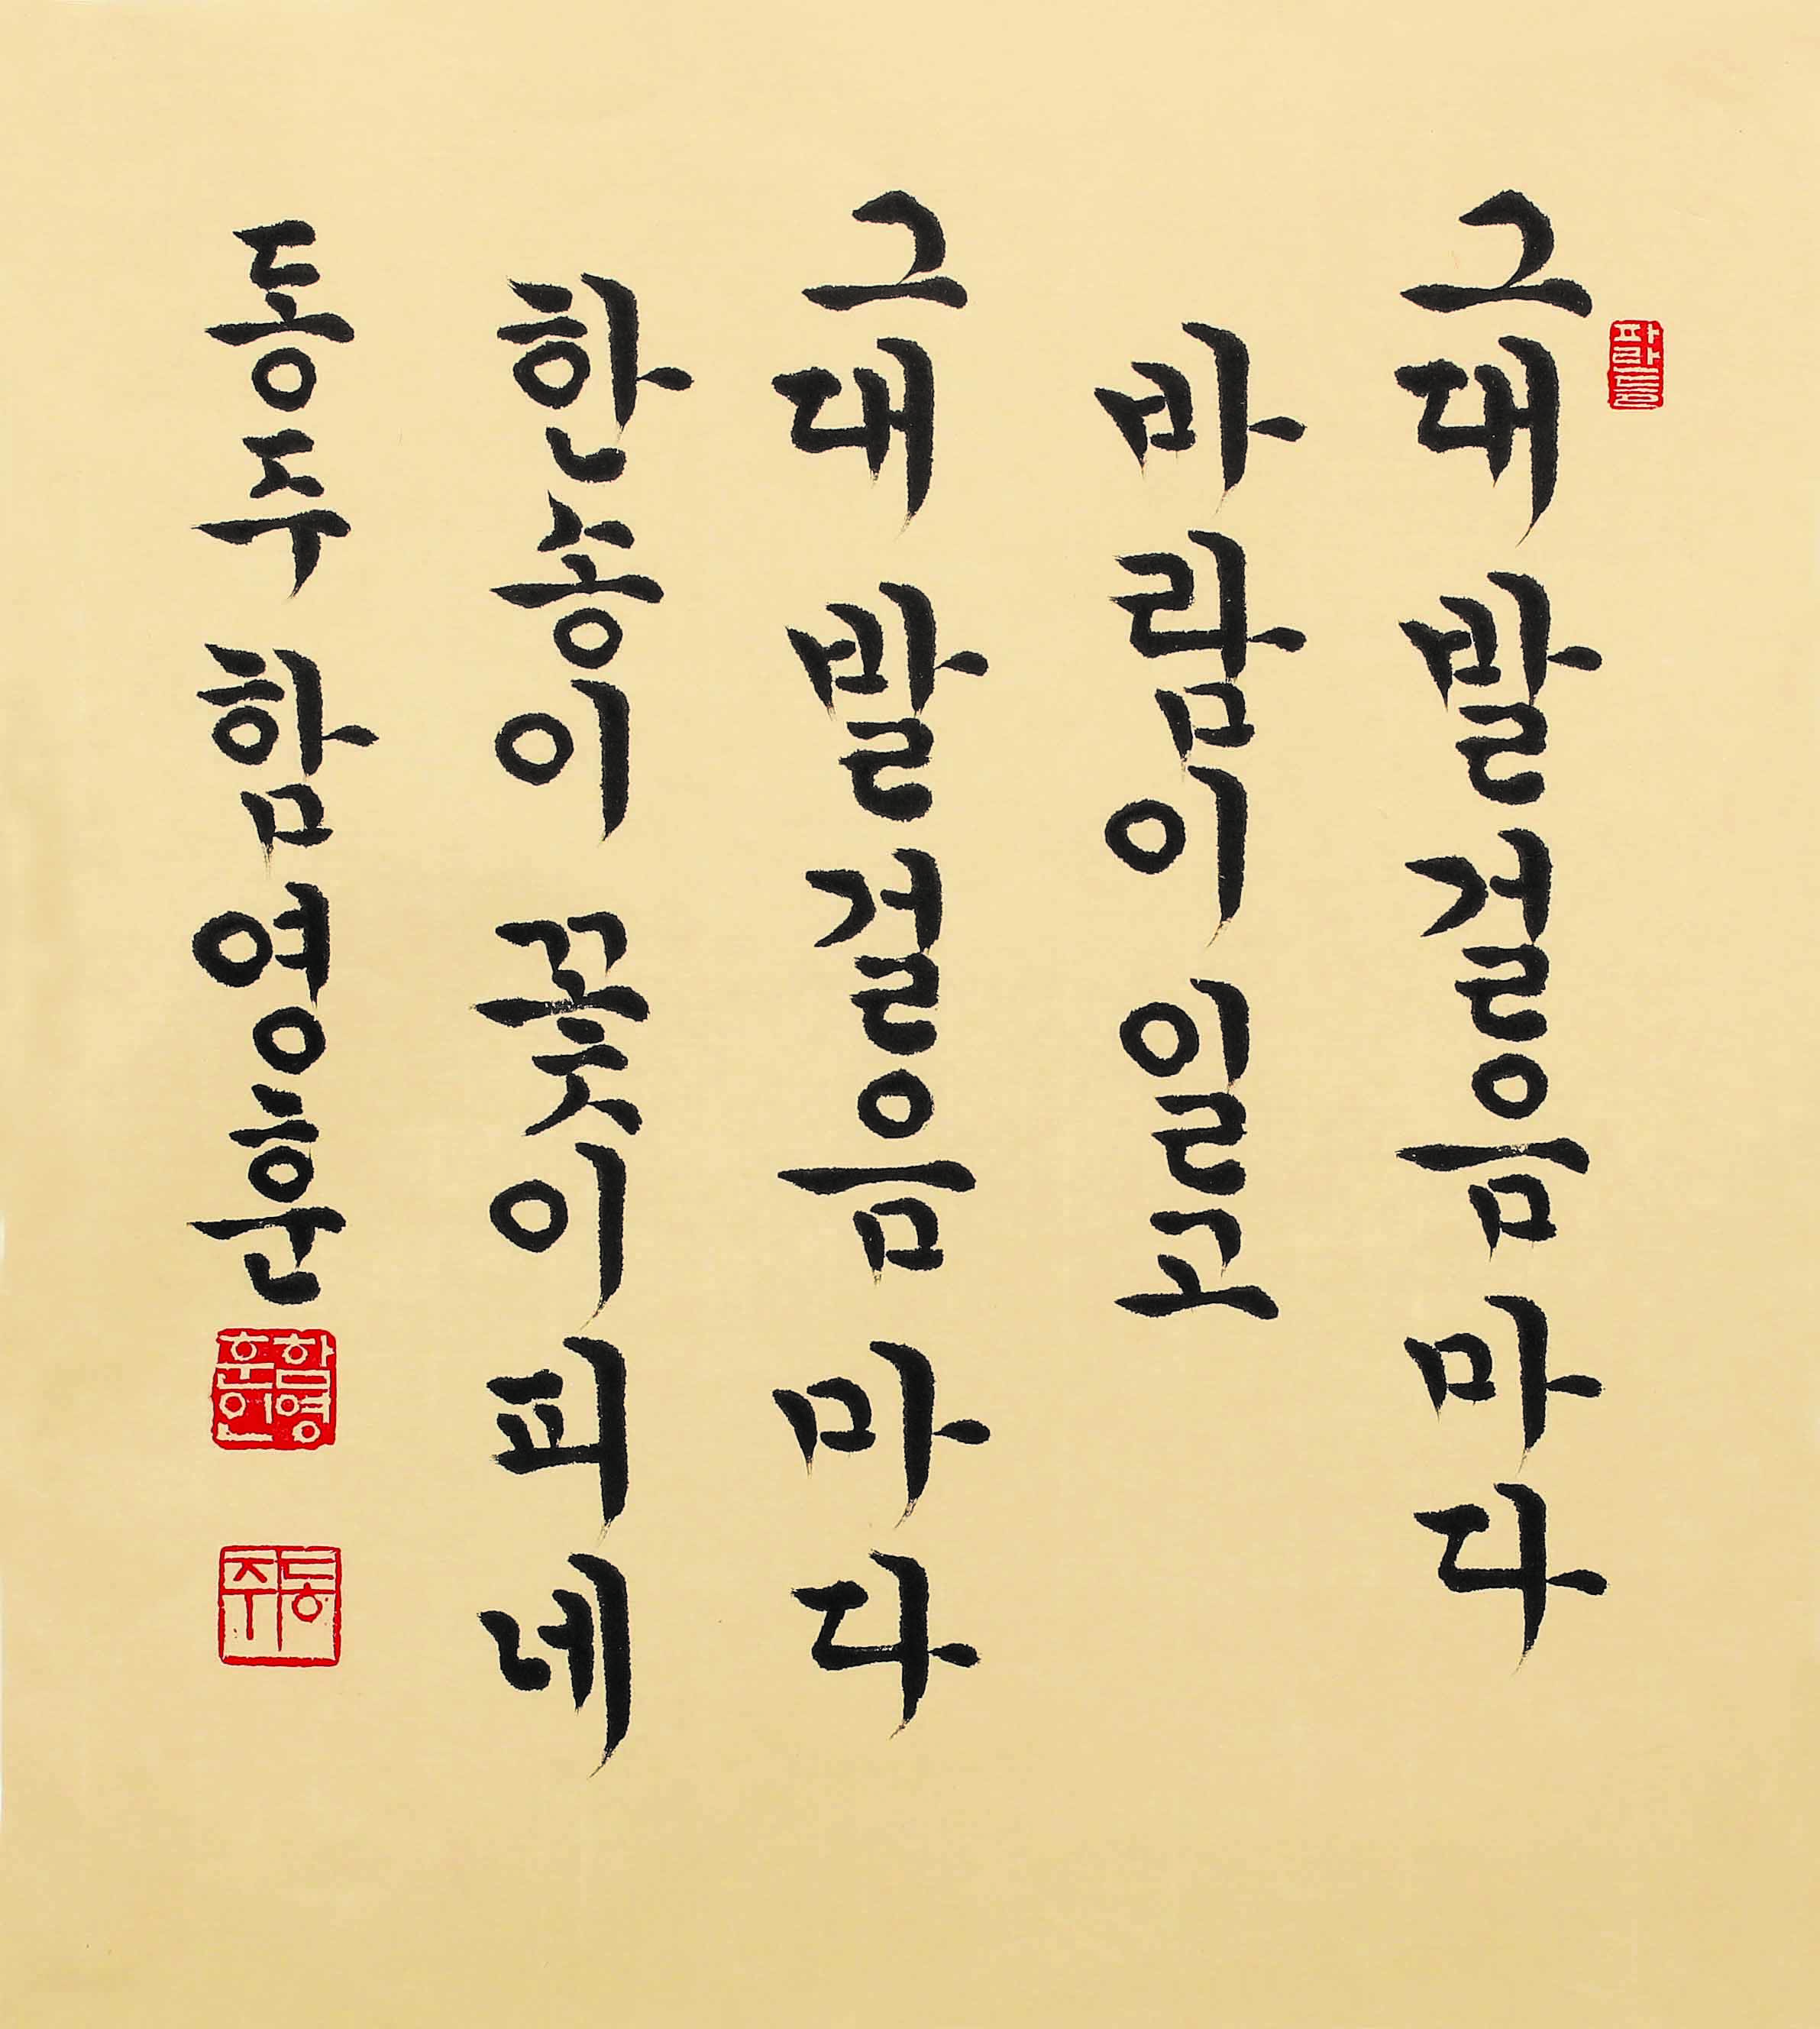 그대 발걸음마다
바람이 일고
그대 발걸음마다
한송이 꽃이 피네
동주 함영훈
함영
훈인
동주